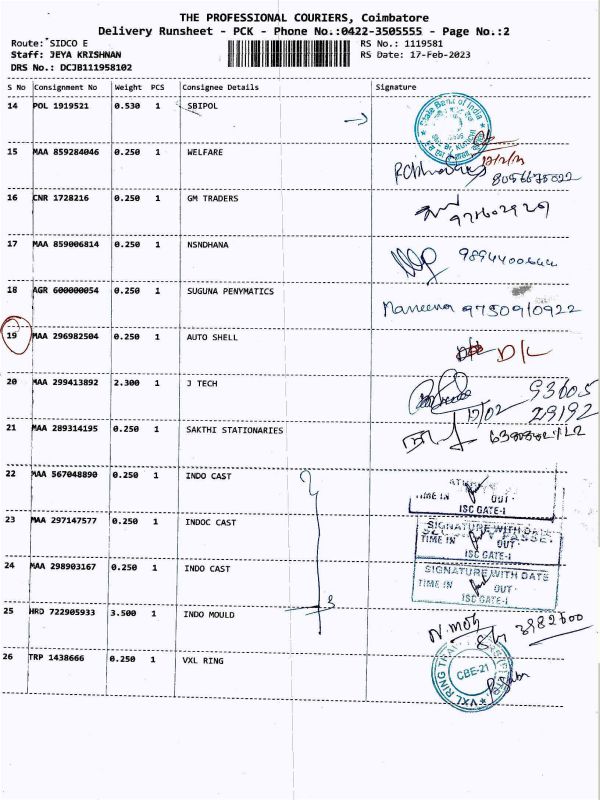 THE PROFESSIONAL COURIERS, Coimbatore
Delivery Runsheet - PCK - Phone No.:0422-3505555 - Page No.:2
Route: SIDCO E RS No.: 1119581
Staff: JEYA KRISHNAN RS Date: 17-Feb-2023
DRS No.: DCJB111958102
S No Consignment No Weight PCS Consignee Details Signature
14 POL 1919521 0.530 1 SBIPOL
State Bank of India
15 MAA 859284046 0.250 1 WELFARE
8056675022
16 CNR 1728216 0.250 1 GM TRADERS
17 MAA 859006814 0.250 1 NSNDHANA
18 AGR 600000054 0.250 1 SUGUNA PENYMATICS
9750910922
19 MAA 296982504 0.250 1 AUTO SHELL
D/L
20 MAA 299413892 2.300 1 J TECH
93605
17/02 29192
21 MAA 289314195 0.250 1 SAKTHI STATIONARIES
22 MAA 567048890 0.250 1 INDO CAST
TIME IN OUT
ISC GATE-I
23 MAA 297147577 0.250 1 INDOC CAST
SIGNATURE WITH DATE
TIME IN OUT
ISC GATE-I
24 MAA 298903167 0.250 1 INDO CAST
SIGNATURE WITH DATE
TIME IN OUT
ISC GATE-I
25 HRD 722905933 3.500 1 INDO MOULD
26 TRP 1438666 0.250 1 VXL RING
CBE-21